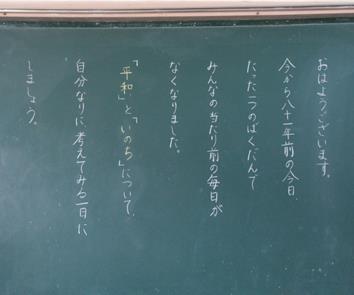 おはようございます。
今から八十一年前の今日
たった一つのばくだんで
みんなの当たり前の毎日が
なくなりました。
「平和」と「いのち」について
自分なりに考えてみる一日に
しましょう。